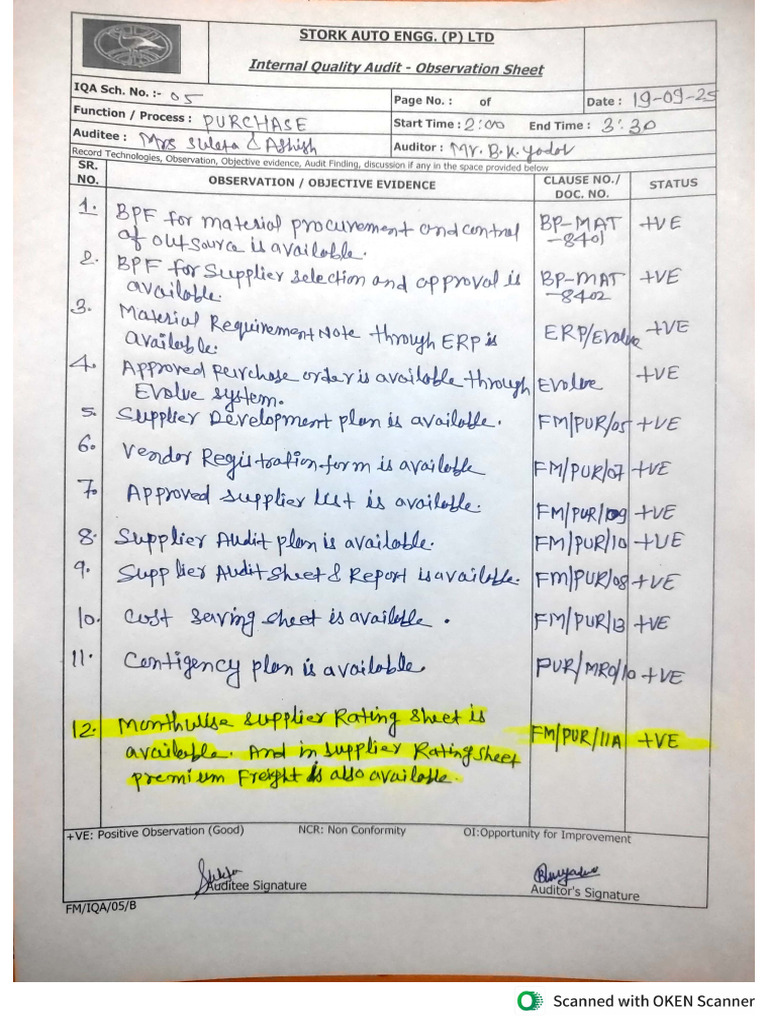 STORK AUTO ENGG. (P) LTD
Internal Quality Audit - Observation Sheet
IQA Sch. No. :- 05
Page No. : of
Date : 19-09-25
Function / Process : PURCHASE
Start Time : 2:00 End Time : 3:30
Auditee : Mrs Suleta & Ashish
Auditor : Mr. B.K. Yadav
Record Technologies, Observation, Objective evidence, Audit Finding, discussion if any in the space provided below
SR. NO. OBSERVATION / OBJECTIVE EVIDENCE CLAUSE NO./ DOC. NO. STATUS
1. BPF for material procurement and control BP-MAT +VE
of outsource is available. -8401
2. BPF for Supplier selection and approval is BP-MAT +VE
available. -8402
3. Material Requirement Note through ERP is ERP/Evolve +VE
available.
4. Approved purchase order is available through Evolve +VE
Evolve system.
5. Supplier Development plan is available. FM/PUR/05 +VE
6. Vendor Registration form is available FM/PUR/07 +VE
7. Approved supplier list is available. FM/PUR/09 +VE
8. Supplier Audit plan is available. FM/PUR/10 +VE
9. Supplier Audit Sheet & Report is available. FM/PUR/08 +VE
10. Cost saving sheet is available. FM/PUR/13 +VE
11. Contigency plan is available. PUR/MRO/10 +VE
12. Monthwise supplier Rating sheet is FM/PUR/11A +VE
available. And in supplier Rating sheet
premium Freight is also available.
+VE: Positive Observation (Good) NCR: Non Conformity OI:Opportunity for Improvement
Auditee Signature
Auditor's Signature
FM/IQA/05/B
Scanned with OKEN Scanner